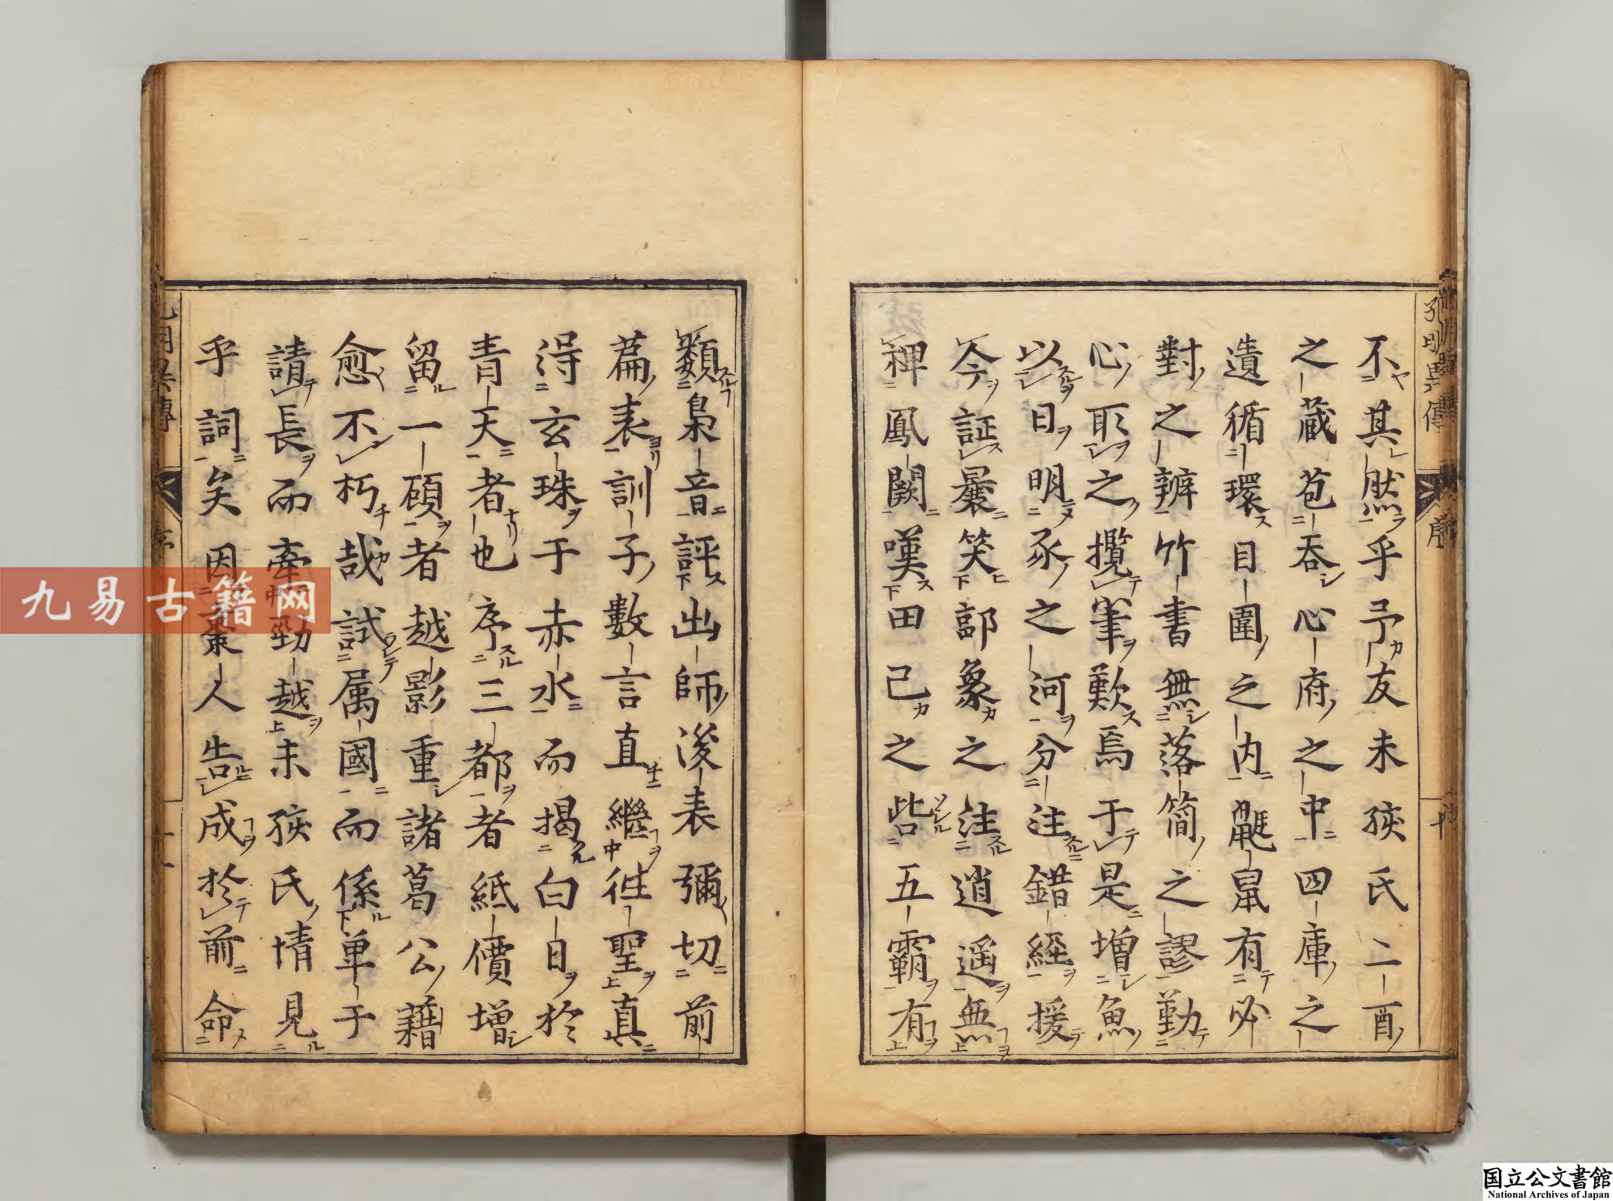 不其然乎予友未狹氏二酉
之藏苞吞心府之中四庫之
遺循環目圍之内鼮鼠有必
對之辨竹書無落簡之謬勤
心取之攬筆歎焉于是増魚
以日明豕之河分注錯經援
今証曩笑郭象之注逍遥無
裨鳳闕嘆田己之呰五霸有
類梟音評出師後表彌切前
篇表訓子數言直繼徃聖真
淂玄珠于赤水而揭白日於
青天者也序三都者紙價增
留一顧者越影重諸葛公籍
愈不朽哉試属國而係単于
請長而牽勁越未狹氏情見
乎詞矣因棗人告成於前命
孔明異傳
序
九易古籍网
国立公文書館
National Archives of Japan